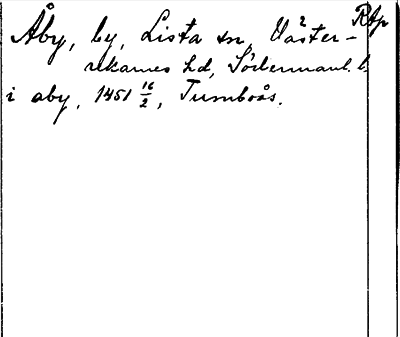 Åby, by, Lista sn, Väster-
Rtp
rekarnes hd, Södermanl. l.
i aby, 1451 16/2, Tumboås.